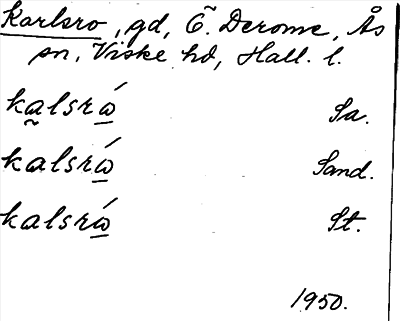 Karlsro, gd, Ö. Derome, Ås
sn, Viske hd, Hall. l.
ka̰lsrώ̲ Sa.
kalsrώ̲ Sand.
kalsrώ̲ St.
1950.